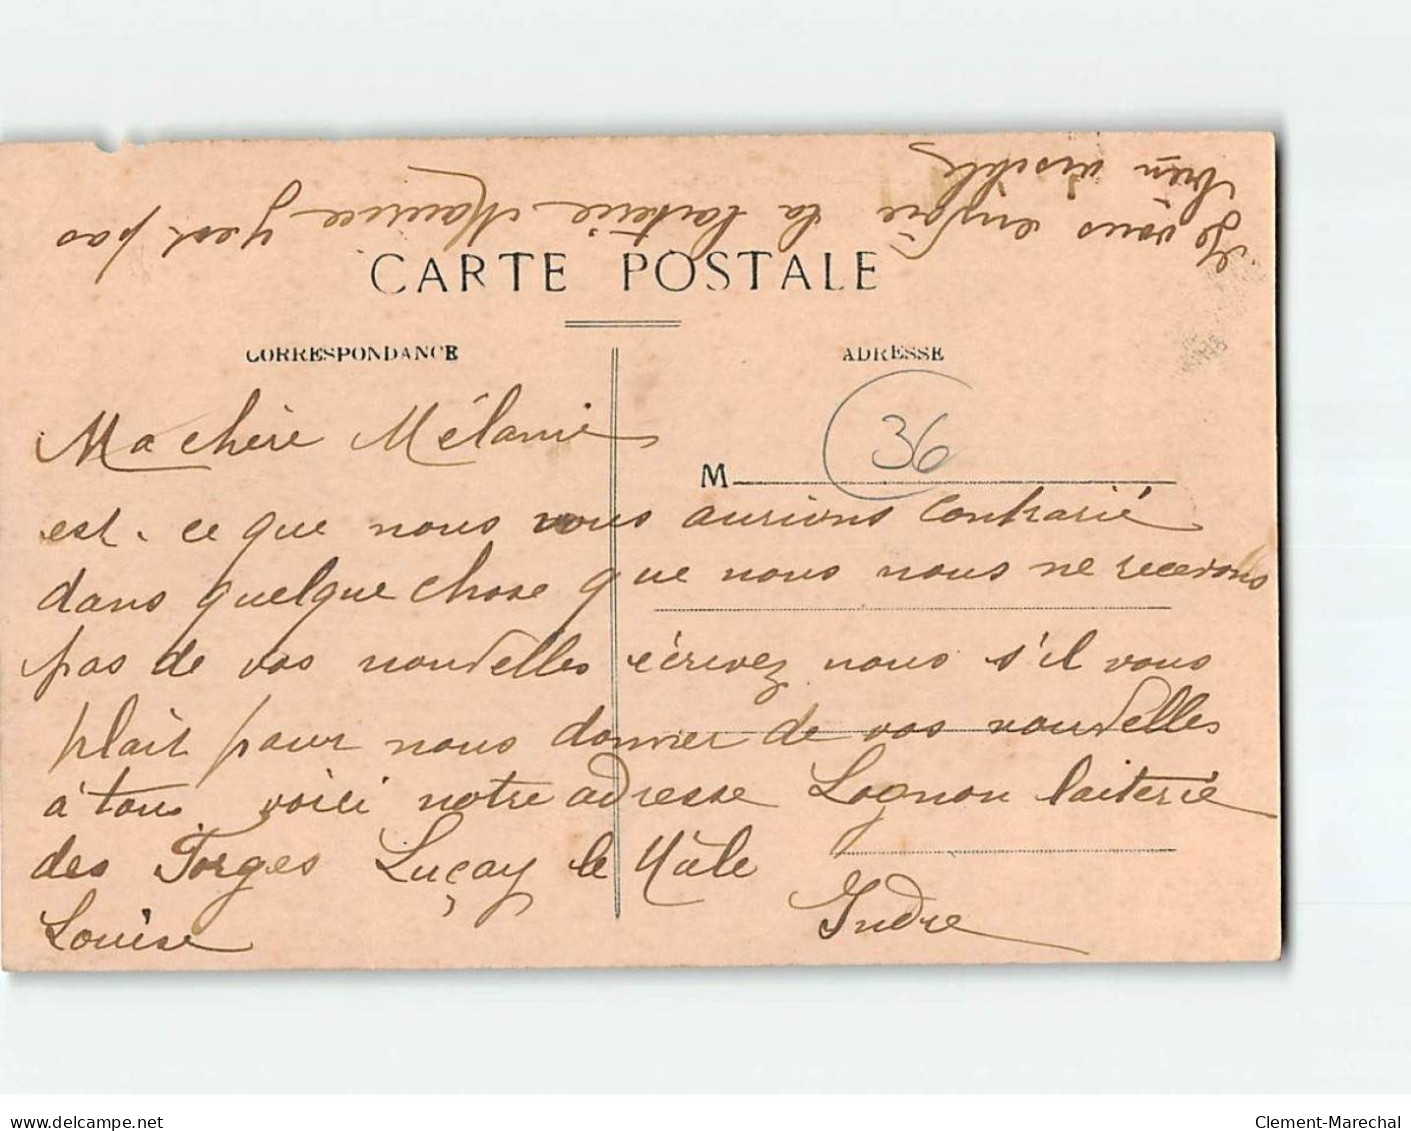 Je vous envoie la laiterie Maurice y est pas
bien visible
CARTE POSTALE
CORRESPONDANCE
ADRESSE
36
M
Ma chère Mélanie
est-ce que nous vous aurions contrarié
dans quelque chose que nous nous ne recevons
pas de vos nouvelles écrivez nous s'il vous
plait pour nous donner de vos nouvelles
à tous voici notre adresse Lognon laiterie
des Forges Luçay le Mâle
Indre
Louise
delcampe.net
Clement-Marechal